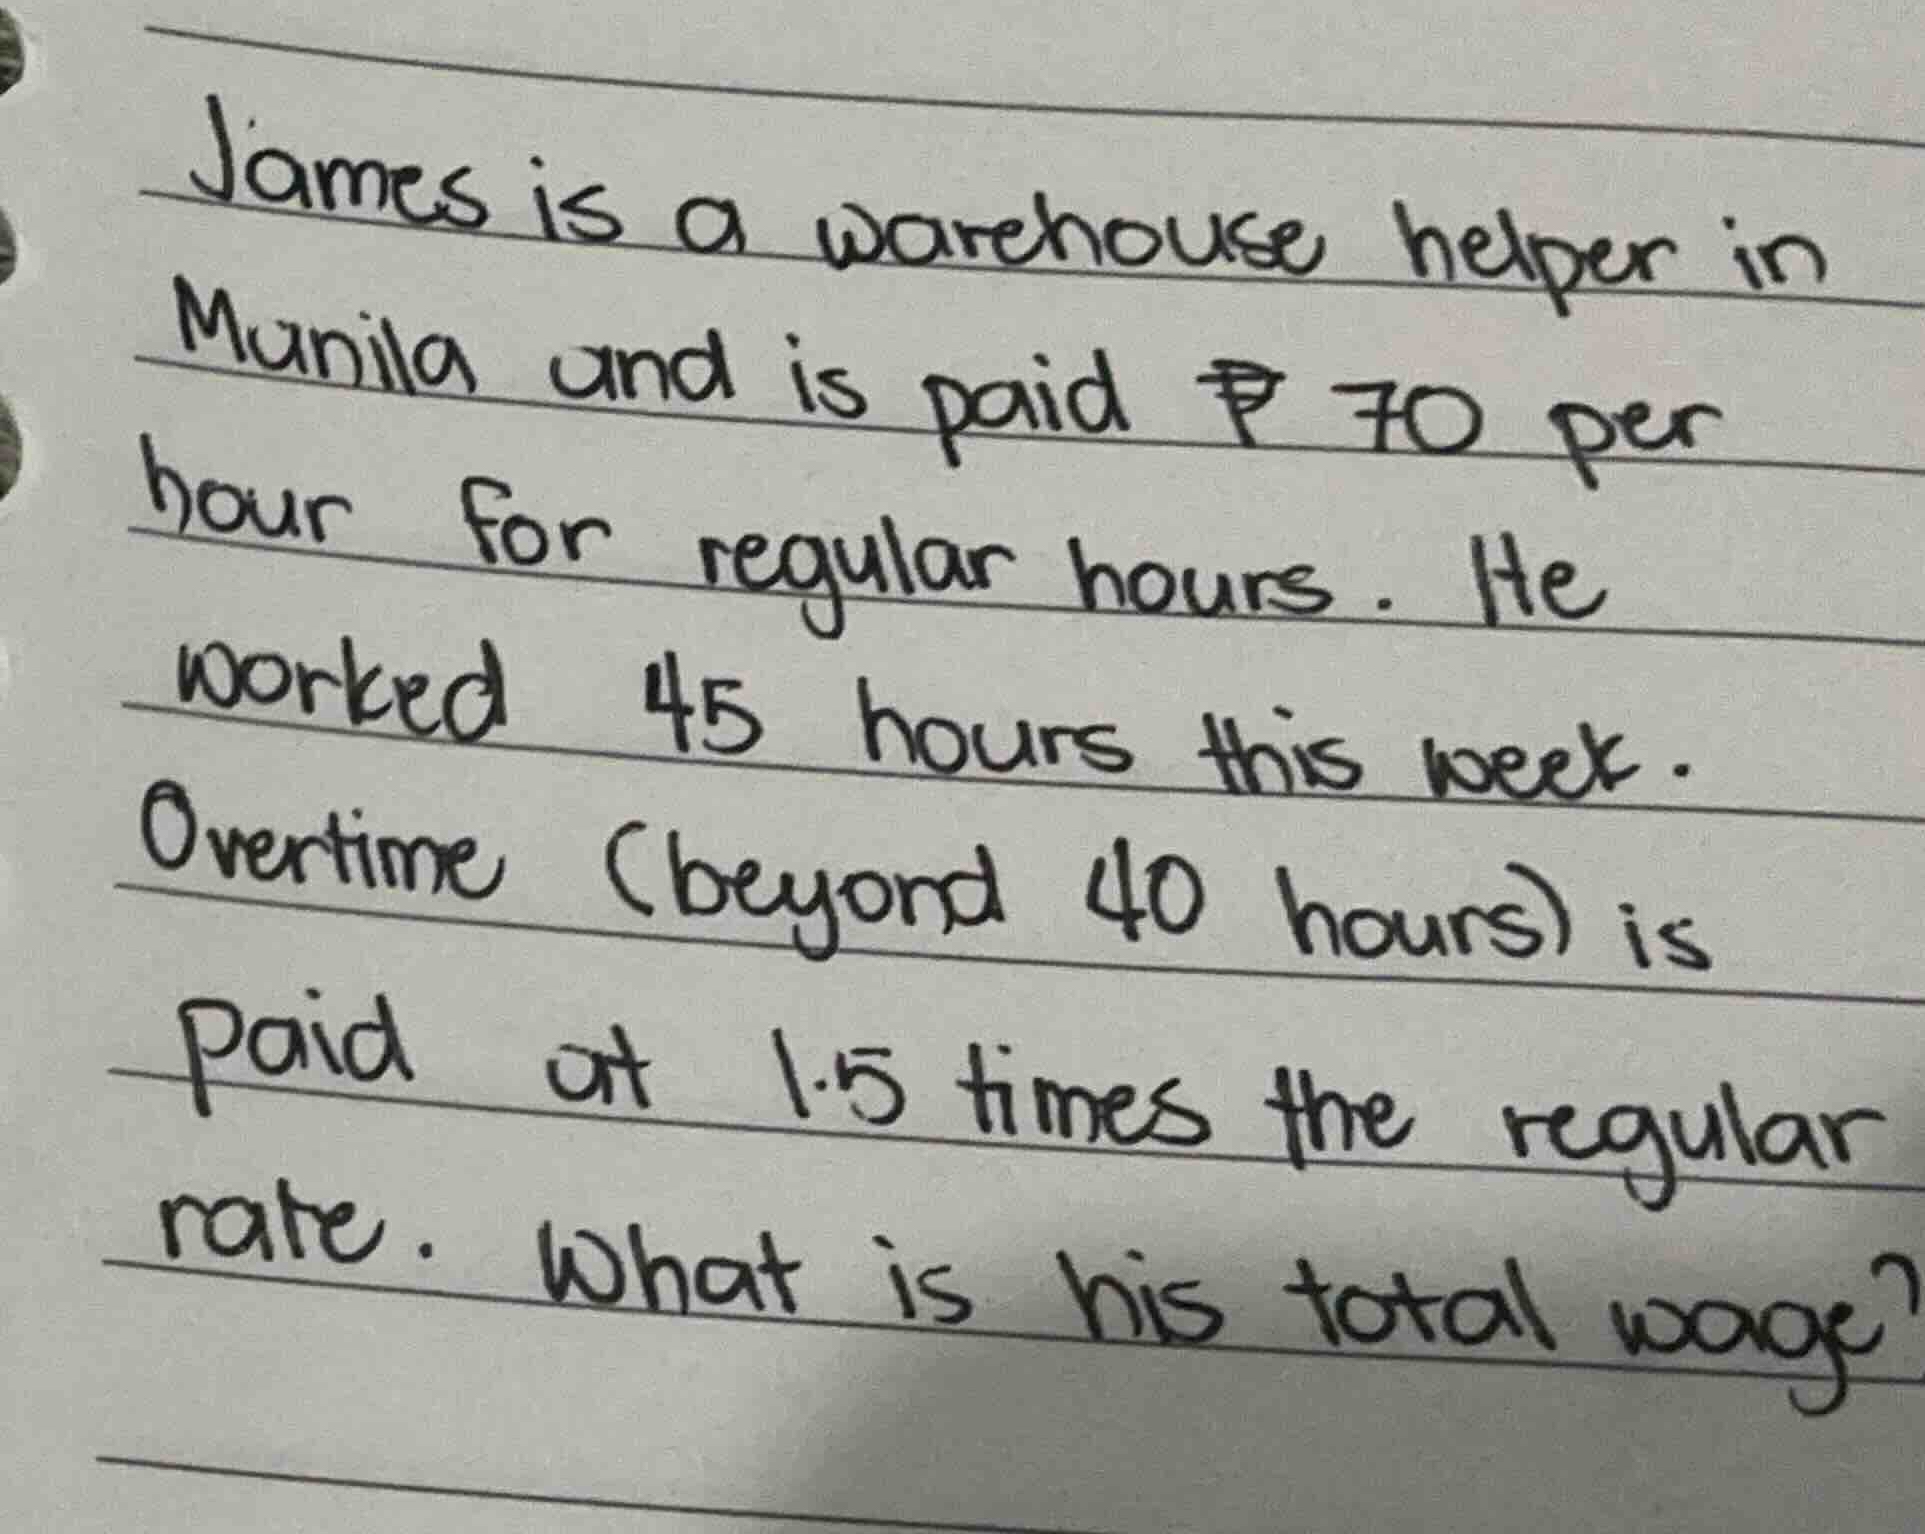 James is a warehouse helper in
Manila and is paid ₱ 70 per
hour for regular hours. He
worked 45 hours this week.
Overtime (beyond 40 hours) is
paid at 1.5 times the regular
rate. What is his total wage?